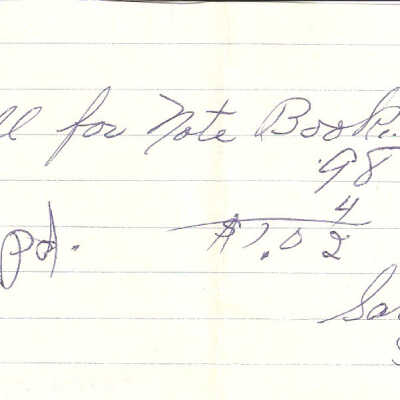 ll for Note Book
.98
4
pd. $1.02
Sa